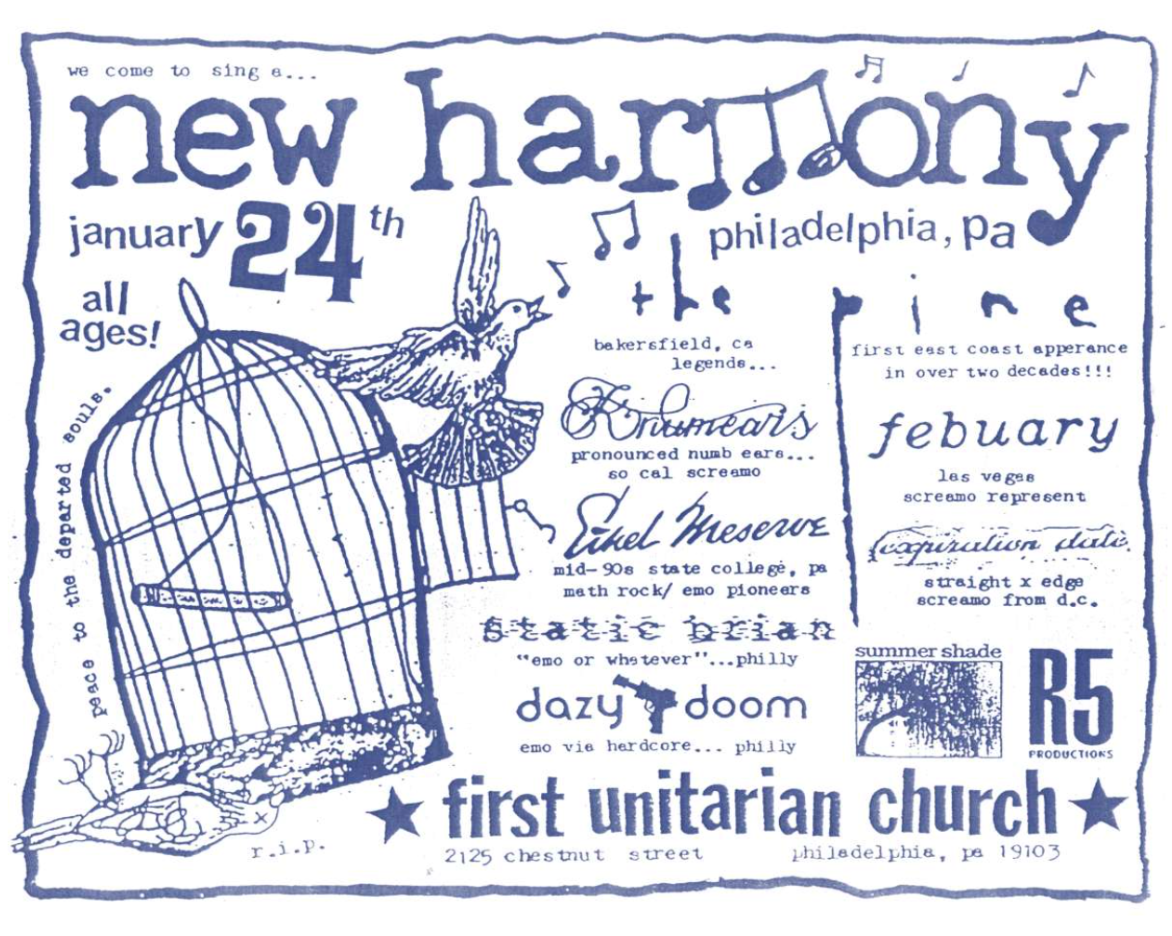 we come to sing a...
new harmony
january 24th
philadelphia, pa
all
ages!
peace to the departed souls.
the pine
bakersfield, ca
legends...
first east coast apperance
in over two decades!!!
Knumears
pronounced numb ears...
so cal screamo
febuary
las vegas
screamo represent
Ethel Meserve
mid-90s state college, pa
math rock/ emo pioneers
expiration date
straight x edge
screamo from d.c.
static brian
"emo or whatever"...philly
dazy doom
emo via hardcore... philly
summer shade
R5
PRODUCTIONS
r.i.p.
★ first unitarian church ★
2125 chestnut street philadelphia, pa 19103